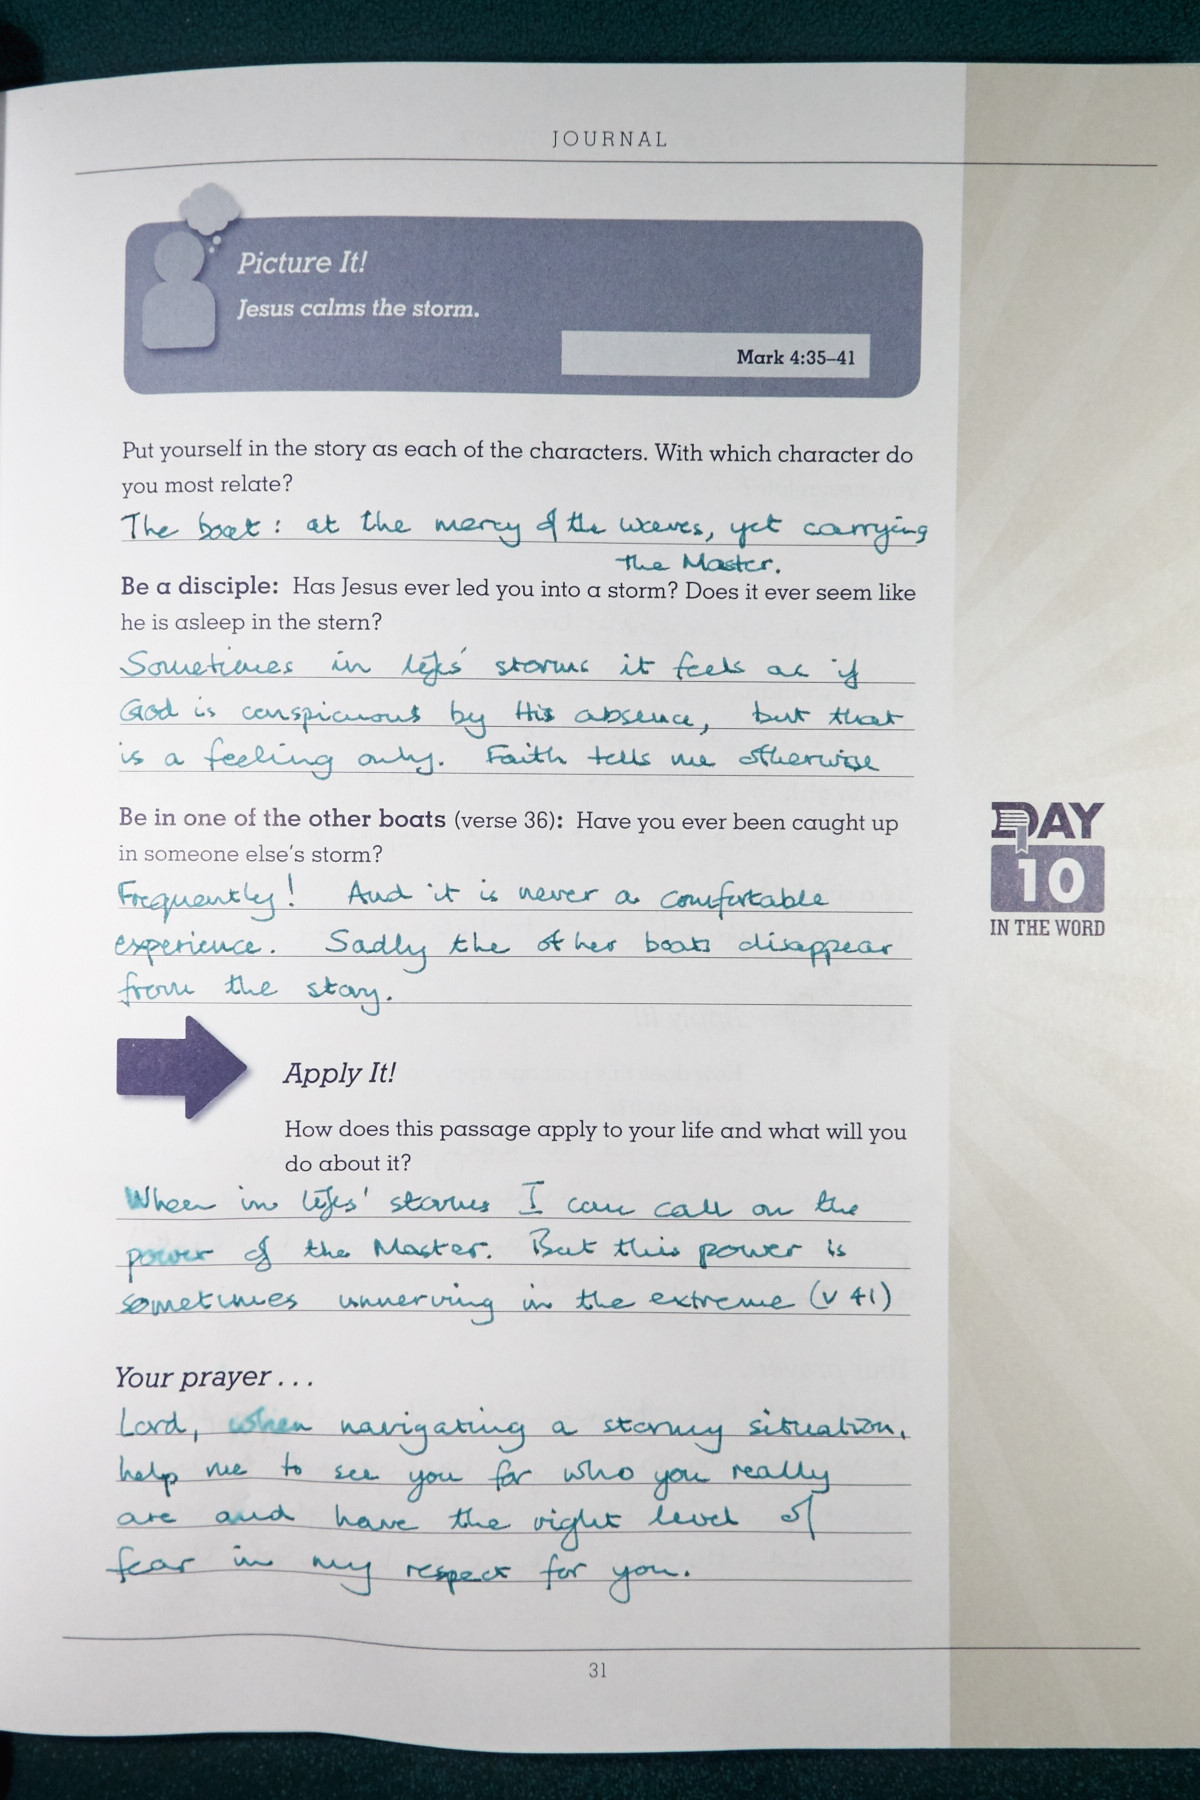 JOURNAL
Picture It!
Jesus calms the storm.
Mark 4:35–41
Put yourself in the story as each of the characters. With which character do
you most relate?
The boat: at the mercy of the waves, yet carrying
the Master.
Be a disciple: Has Jesus ever led you into a storm? Does it ever seem like
he is asleep in the stern?
Sometimes in lifes' storms it feels as if
God is conspicuous by His absence, but that
is a feeling only. Faith tells me otherwise
Be in one of the other boats (verse 36): Have you ever been caught up
in someone else's storm?
Frequently! And it is never a comfortable
experience. Sadly the other boats disappear
from the story.
Apply It!
How does this passage apply to your life and what will you
do about it?
When in lifes' storms I can call on the
power of the Master. But this power is
sometimes unnerving in the extreme (v 41)
Your prayer . . .
Lord, when navigating a stormy situation,
help me to see you for who you really
are and have the right level of
fear in my respect for you.
DAY
10
IN THE WORD
31